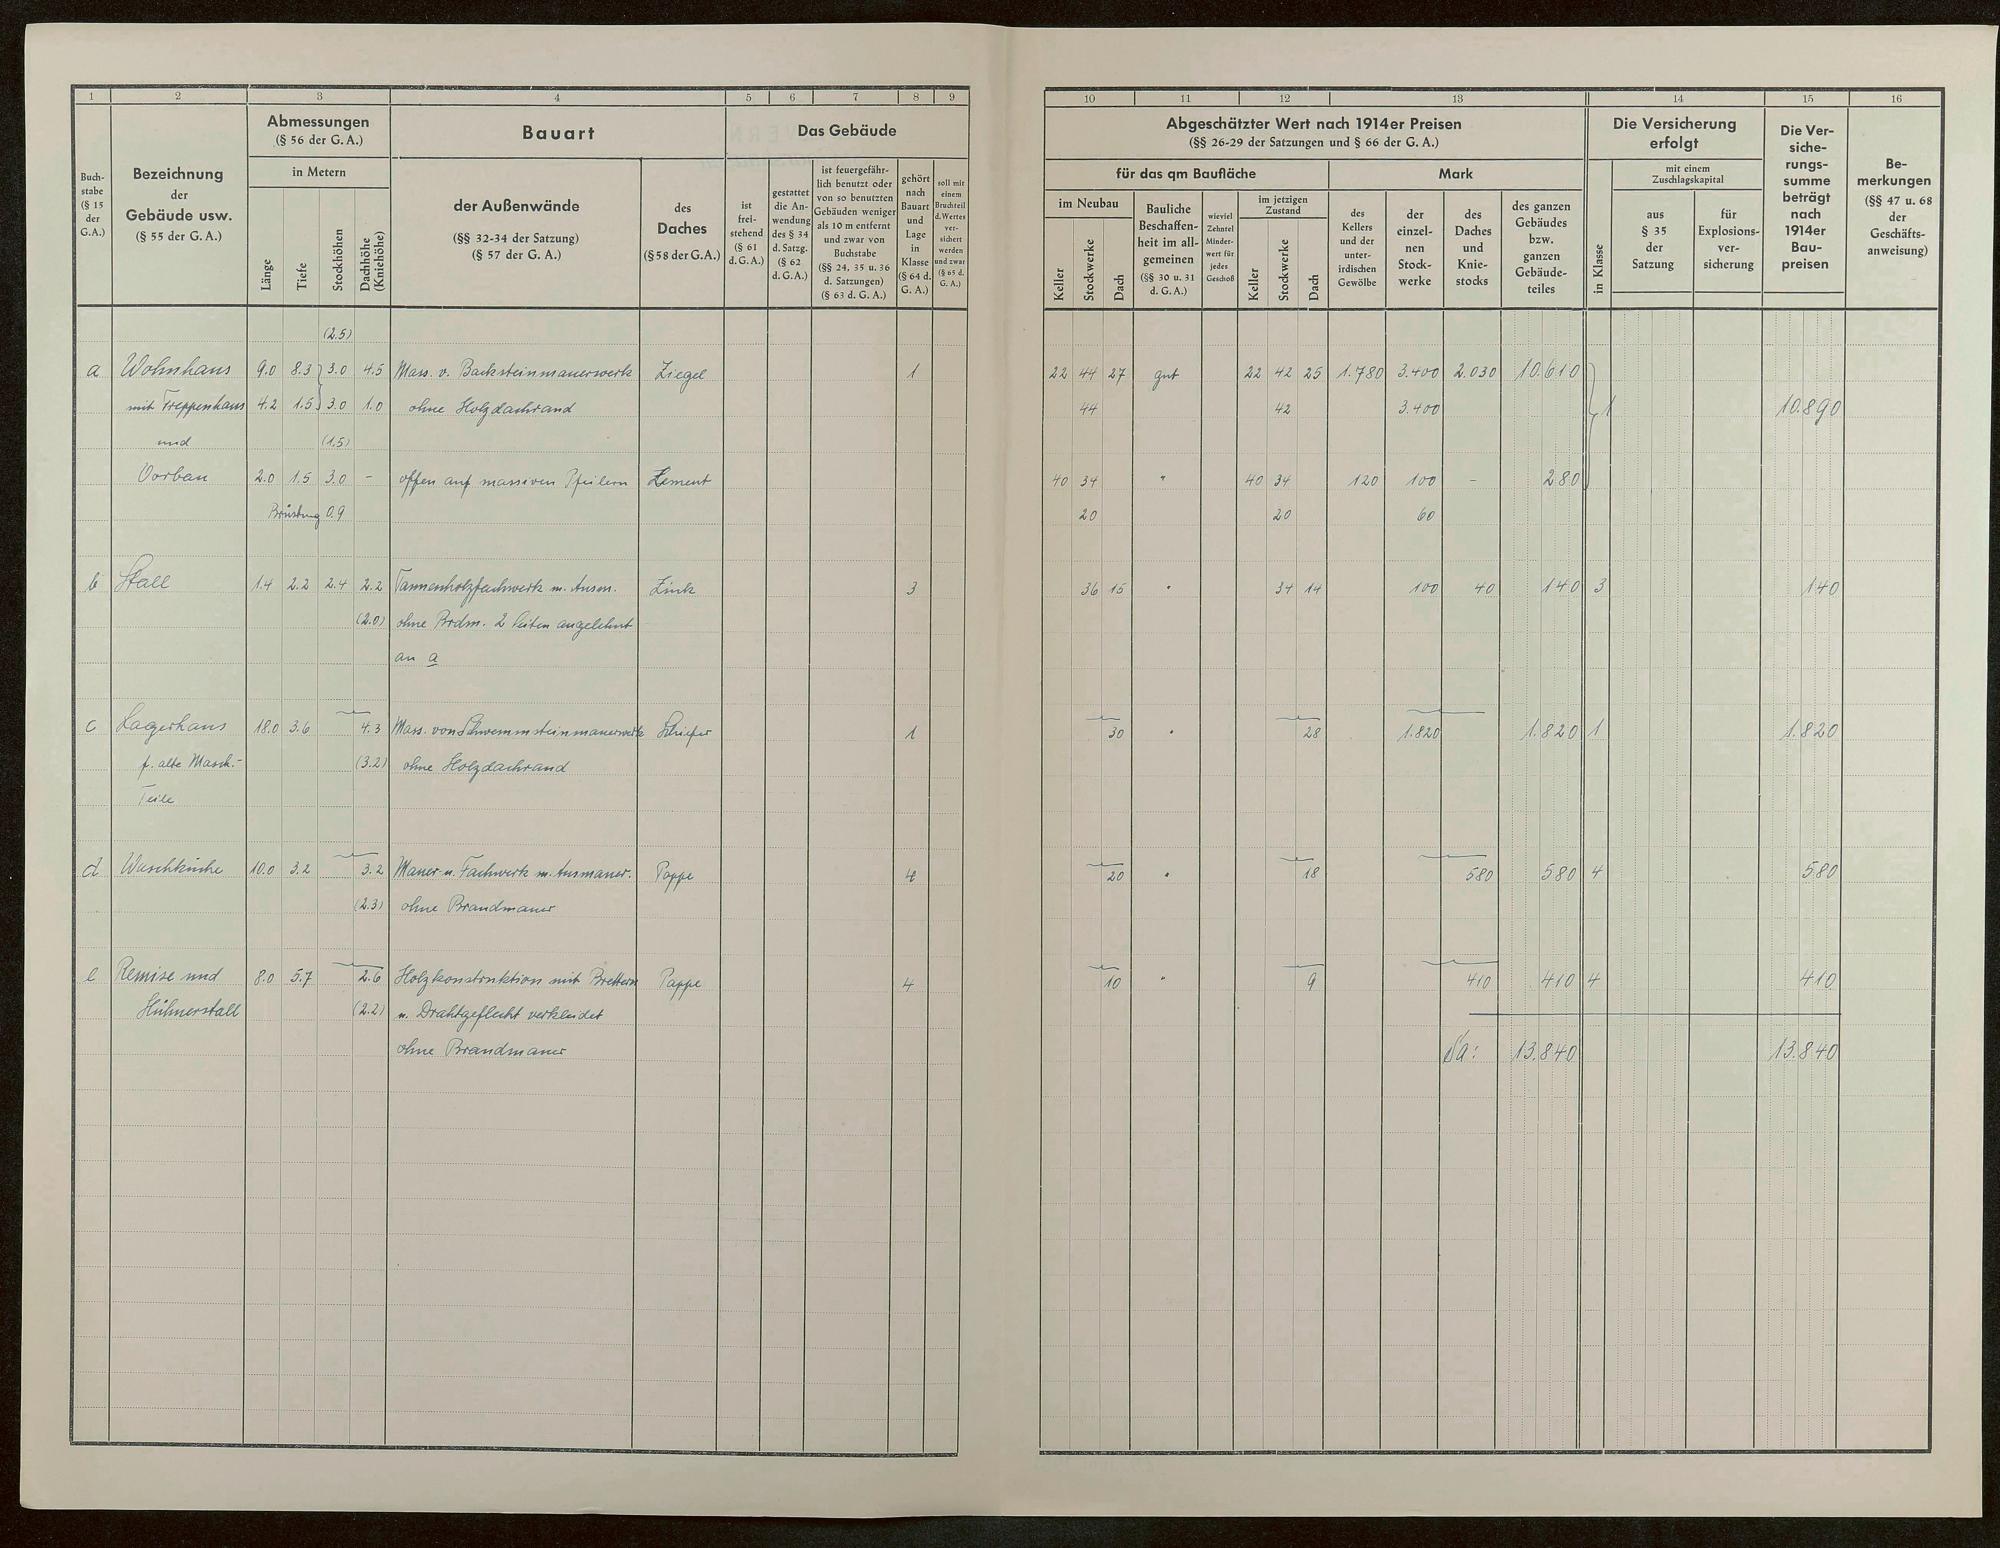 1 2 3 4 5 6 7 8 9
Buch-
stabe
(§ 15
der
G.A.)
Bezeichnung
der
Gebäude usw.
(§ 55 der G. A.)
Abmessungen
(§ 56 der G. A.)
in Metern
Länge
Tiefe
Stockhöhen
Dachhöhe
(Kniehöhe)
Bauart
der Außenwände
(§§ 32-34 der Satzung)
(§ 57 der G. A.)
des
Daches
(§ 58 der G. A.)
Das Gebäude
ist
frei-
stehend
(§ 61
d. G. A.)
gestattet
die An-
wendung
des § 34
d. Satzg.
(§ 62
d. G. A.)
ist feuergefähr-
lich benutzt oder
von so benutzten
Gebäuden weniger
als 10 m entfernt
und zwar von
Buchstabe
(§§ 24, 35 u. 36
d. Satzungen)
(§ 63 d. G. A.)
gehört
nach
Bauart
und
Lage
in
Klasse
(§ 64 d.
G. A.)
soll mit
einem
Bruchteil
d. Wertes
ver-
sichert
werden
und zwar
(§ 65 d.
G. A.)
(2.5)
a Wohnhaus 9.0 8.3 3.0 4.5 Mass. v. Backsteinmauerwerk Ziegel 1
mit Treppenhaus 4.2 1.5 3.0 1.0 ohne Holzdachrand
und (1.5)
Vorbau 2.0 1.5 3.0 - offen auf massiven Pfeilern Zement
Brüstung 0.9
b Stall 1.4 2.2 2.4 2.2 Tannenholzfachwerk m. Ausm. Zink 3
(2.0) ohne Brdm. 2 Seiten angelehnt
an a
c Lagerhaus 18.0 3.6 4.3 Mass. von Schwemmsteinmauerwerk Schiefer 1
f. alte Masch.- (3.2) ohne Holzdachrand
Teile
d Waschküche 10.0 3.2 3.2 Mauer u. Fachwerk m. Ausmauer. Pappe 4
(2.3) ohne Brandmauer
e Remise und 8.0 5.7 2.6 Holzkonstruktion mit Brettern Pappe 4
Hühnerstall (2.2) u. Drahtgeflecht verkleidet
ohne Brandmauer
10 11 12 13 14 15 16
Abgeschätzter Wert nach 1914er Preisen
(§§ 26-29 der Satzungen und § 66 der G. A.)
für das qm Baufläche
Mark
im Neubau
Keller
Stockwerke
Dach
Bauliche
Beschaffen-
heit im all-
gemeinen
(§§ 30 u. 31
d. G. A.)
wieviel
Zehntel
Minder-
wert für
jedes
Geschoß
im jetzigen
Zustand
Keller
Stockwerke
Dach
des
Kellers
und der
unter-
irdischen
Gewölbe
der
einzel-
nen
Stock-
werke
des
Daches
und
Knie-
stocks
des ganzen
Gebäudes
bzw.
ganzen
Gebäude-
teiles
Die Versicherung
erfolgt
in Klasse
mit einem
Zuschlagskapital
aus
§ 35
der
Satzung
für
Explosions-
ver-
sicherung
Die Ver-
siche-
rungs-
summe
beträgt
nach
1914er
Bau-
preisen
Be-
merkungen
(§§ 47 u. 68
der
Geschäfts-
anweisung)
22 44 27 gut 22 42 25 1.780 3.400 2.030 10.610
44 42 3.400 1 10.890
40 34 " 40 34 120 100 - 280
20 20 60
36 15 " 34 14 100 40 140 3 140
30 " 28 1.820 1.820 1 1.820
20 " 18 580 580 4 580
10 " 9 410 410 4 410
Sa: 13.840 13.840